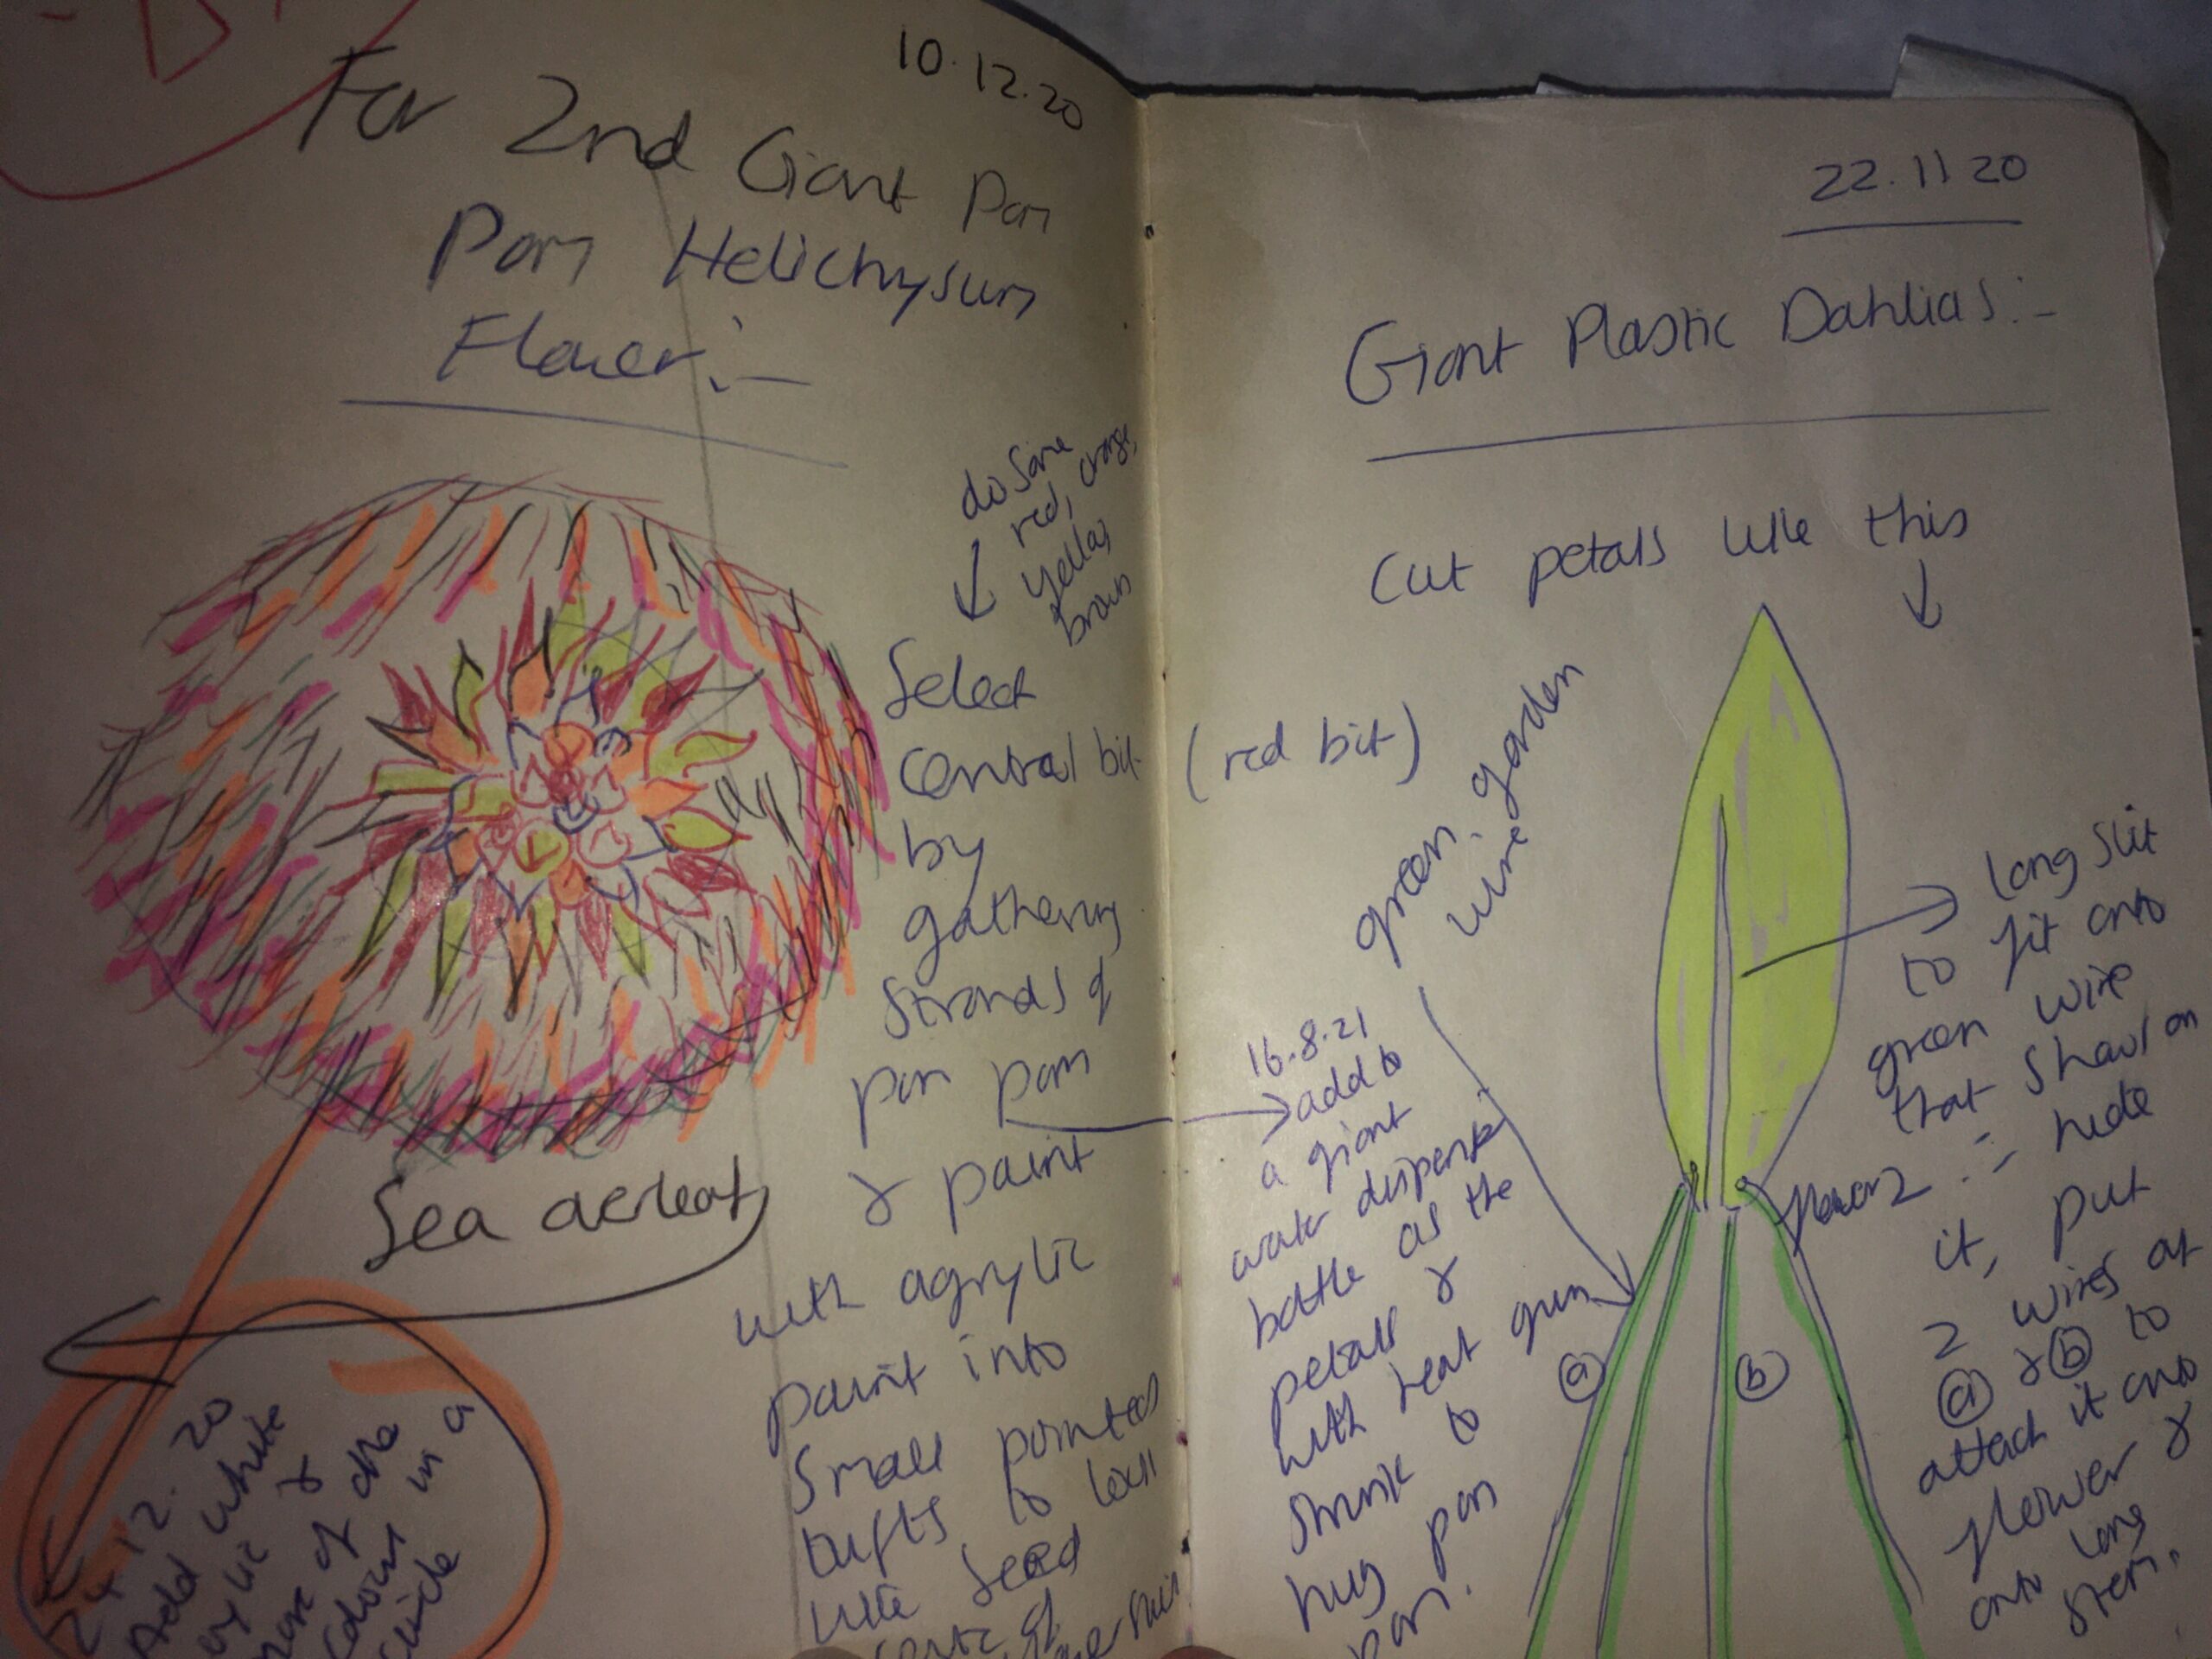 10.12.20
For 2nd Giant Pom
Pom Helichysum
Flower:-
do same
red, orange,
yellow,
brown
Select
central bit (red bit)
by
gathering
strands of
pom pom
& paint
with acrylic
paint into
small pointed
tufts to look
like seed
centre of
Sea
24.12.20
Add white
& 
more of the
colours in a
circle
22.11 20
Giant Plastic Dahlias:-
Cut petals like this
green garden
wire
long slit
to fit onto
green wire
that shows on
flower 2 :- hide
it, put
2 wires at
a & b to
attach it onto
flower &
onto long
stem.
a
b
16.8.21
add to
a giant
water dispenser
bottle as the
petals &
with heat gun
shrink to
hug pom
pom.